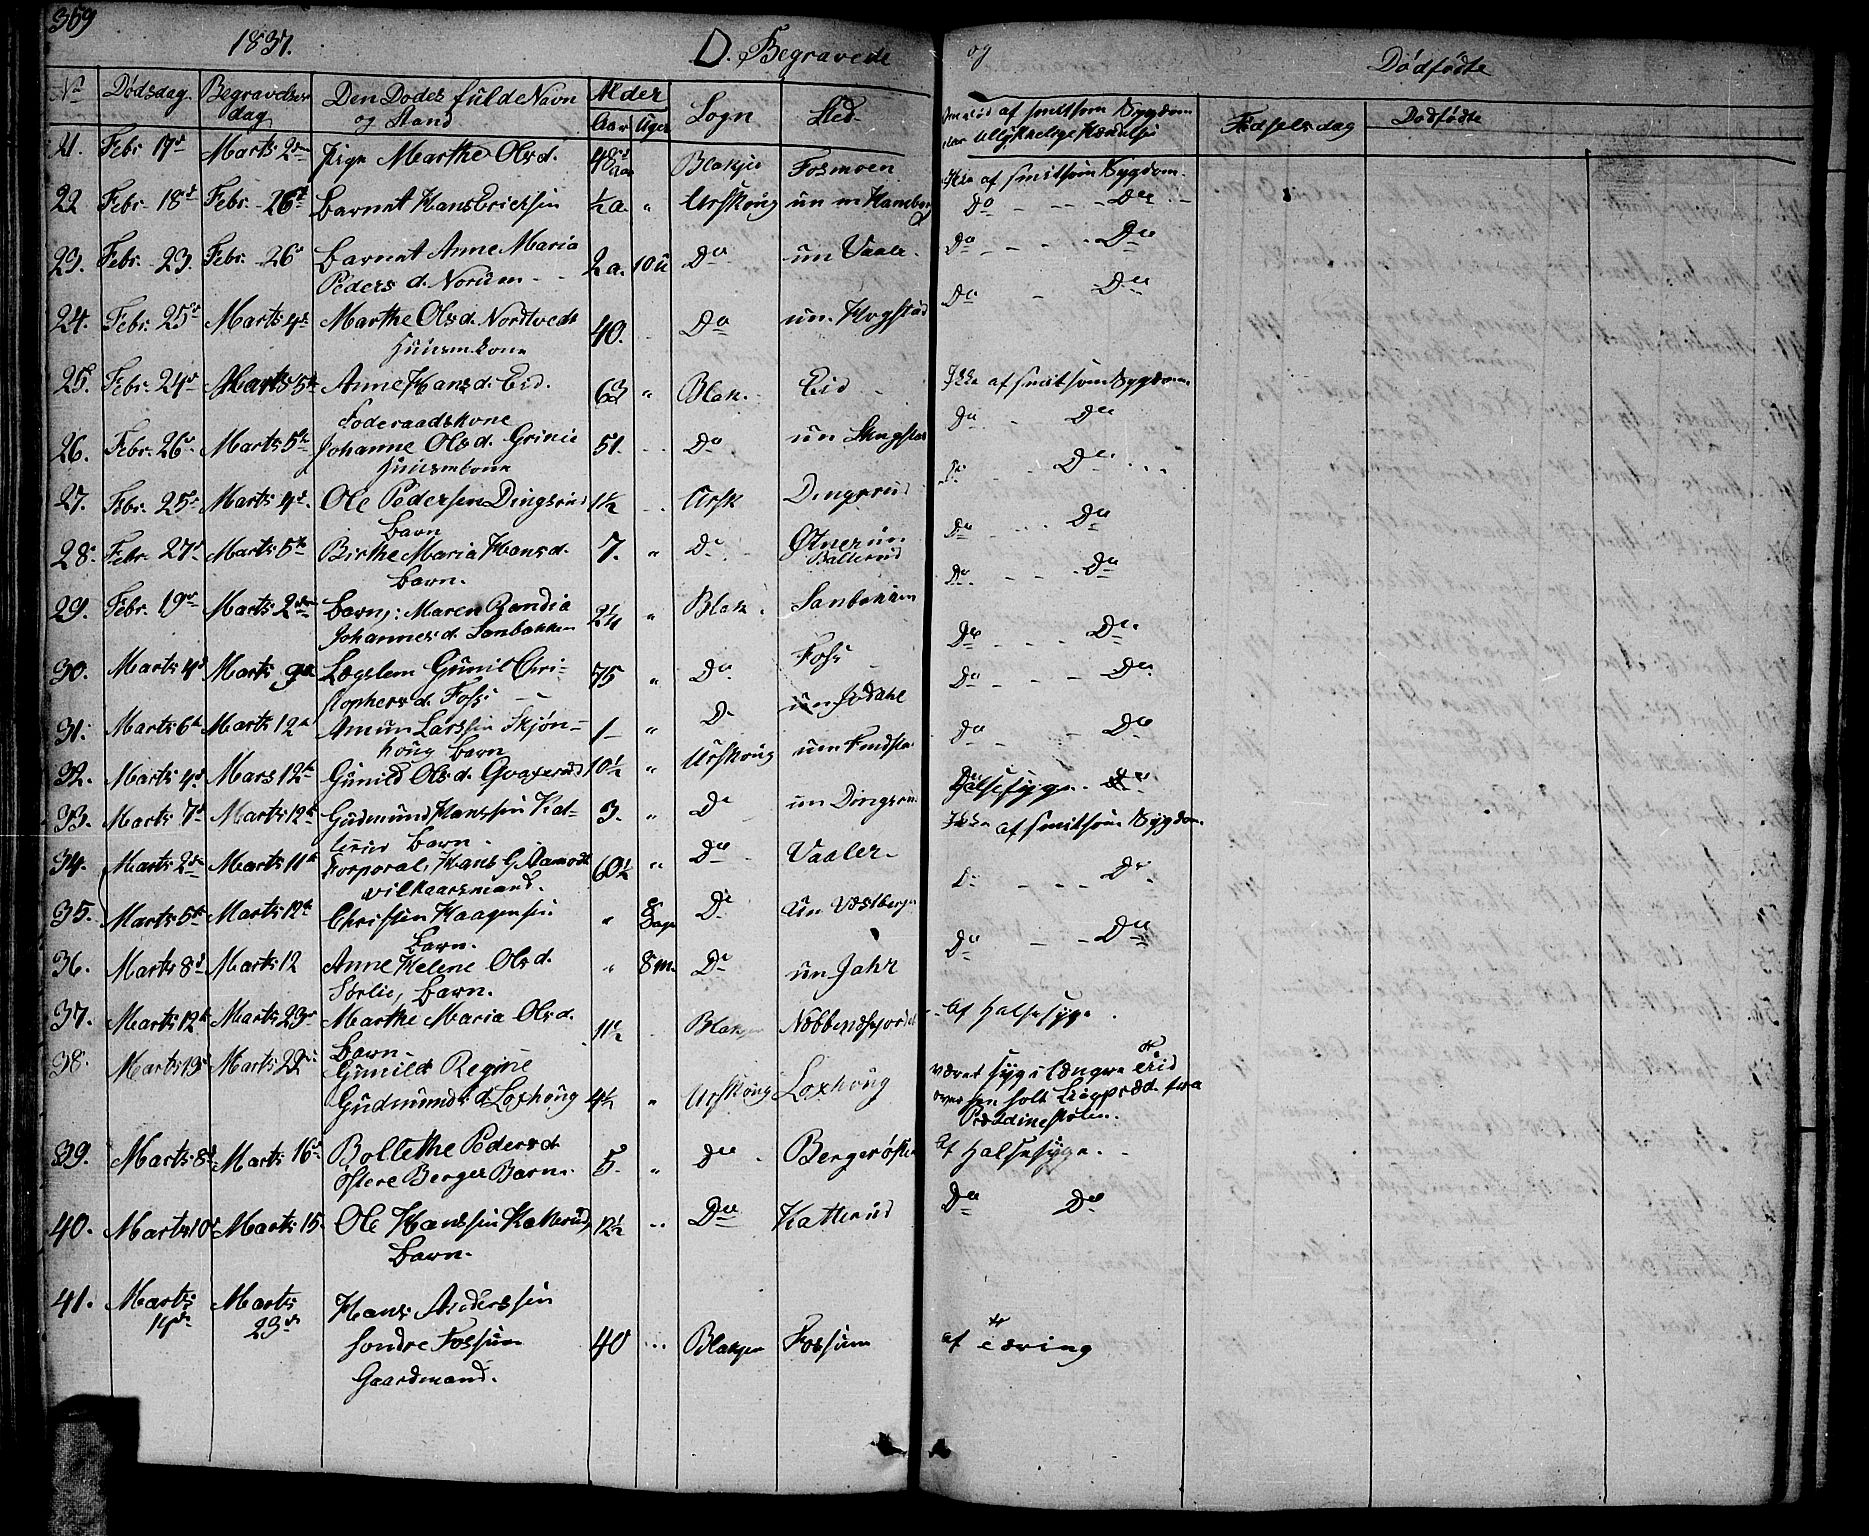 369
1837.
D. Begravede
og
Dødfødte
No Dødsdag Begravelses dag Den Dodes fulde Navn og Stand Alder Aar Uger Sogn Sted
om død af smitsom Sygdom eller Ulykkelige Hændelse Fødselsdag Dødfødte
21. Febr 17d Marts 2den Pige Marthe Olsd. 48 Aar Blakjer Fosmoen Ikke af smitsom Sygdom.
22 Febr. 18d Febr. 26d Barnet Hans Ericksen ½ a. " Urskoug un Do Do
23. Febr. 23. Febr. 26d Barnet Anne Maria
Peders d. Norum 2 a. 10 u Do un Vaaler Do Do
24. Febr. 25d Marts 4d Marthe Olsd. Nordtvedt
Huusmkone 40. Do un. Hogstad Do Do
25. Febr. 24d Marts 5te Anne Hansd. Eid.
Foderaadskone 63 " Blak. Eid Ikke af smitsom Sygdom
26. Febr. 26d Marts 5te Johanne Olsd. Grinie
Huusmkone 51. Do un Do Do
27. Febr. 25d Marts 4d. Ole Pedersen Dingsrud
barn 1½ Ursk Dingsrud Do Do
28. Febr. 27d Marts 5te Birthe Maria Hansd.
barn. 7. " Do Do Do
29. Febr. 19d Marts 2den Barn,: Maren Randia
Johannesd. Sanbakken 2¼ " Blak. Sanbakken Do Do
30. Marts 4d Marts 9de Lægslem Gunil Chri-
stophersd. Foss 75 " Do Foss Do Do
31. Marts 6te Marts 12te Amun Larssen Skjøn-
houg barn 1 " Do un Do Do
32. Marts 4d Mars 12te Gunild Olsd. 10½ " Urskoug Do Do
33. Marts 7d Marts 12te Gudmund Hanssen Kat-
terud Barn. 3. " Do un Dingsrud Halsesyge.
34. Marts 2den Marts 11te Korporal, Hans G Aamodt
vilkaarsmand. 60½ " Do Vaaler Ikke af smitsom Sygdom
35. Marts 5te Marts 12te Christen Haagensen
barn. " 8 Dage Do un Do Do
36. Marts 8d Marts 12 Anne Helene Olsd.
Sørlie, barn. " 8 m. Do un Jahr Do Do
37. Marts 12te Marts 23d Marthe Maria Olsd.
Barn 11½ Blakjer Af Halsesyge.
38. Marts 13d Marts 22d Gunild Regine
Gudmunds d. Loxhoug 4½ " Urskoug Loxhoug været syg i længere Tid
Prædikestolen.
39. Marts 8d Marts 16d Bollethe Pedersd.
Østere Berger Barn. 5. " Do Bergerøstre Af Halsesyge.
40. Marts 10d Marts 15 Ole Hanssen Katterud,
Barn. 12½ Do Katterud Do Do
41. Marts 14de Marts 23d Hans Anderssen
Søndre Fossum
Gaardmand. 40 Blakjer Fossum af Tæring